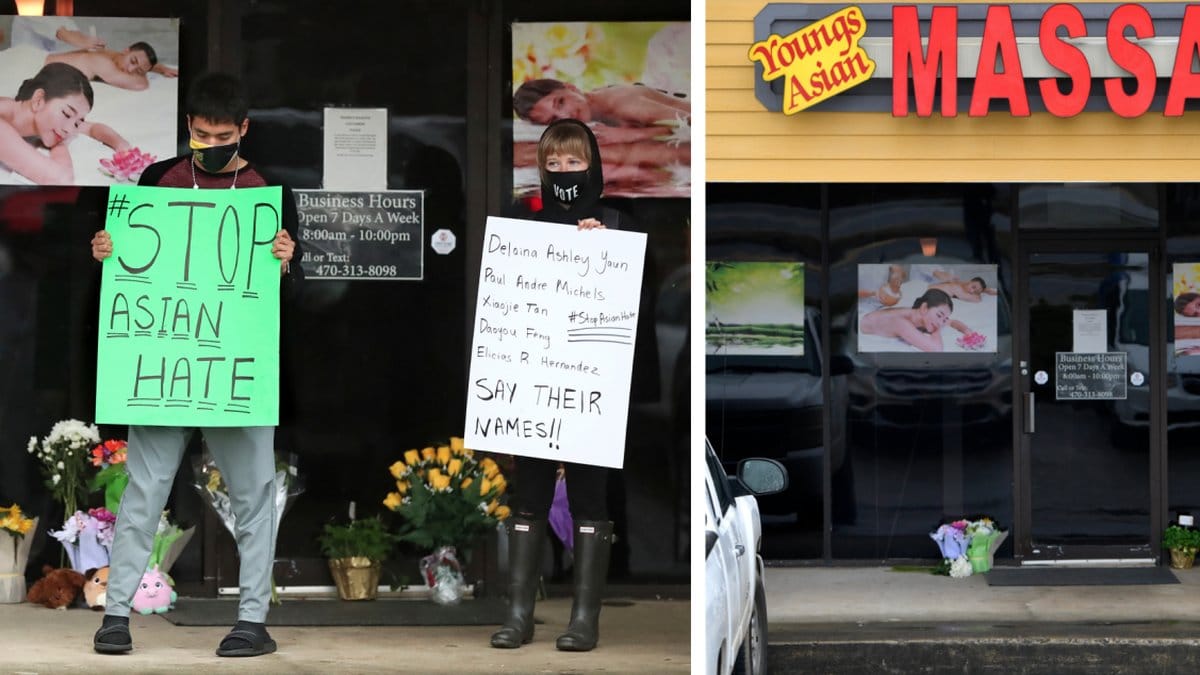 #STOP
ASIAN
HATE
VOTE
Business Hours
Open 7 Days A Week
8:00am - 10:00pm
ll or Text:
470-313-8098
Delaina Ashley Yaun
Paul Andre Michels
Xiaojie Tan
#StopAsianHate
Daoyou Feng
Elicias R. Hernandez
SAY THEIR
NAMES!!
Youngs
Asian
MASSA
Business Hours
Open 7 Days A Week
8:00am - 10:00pm
Call or Text:
470-313-8098